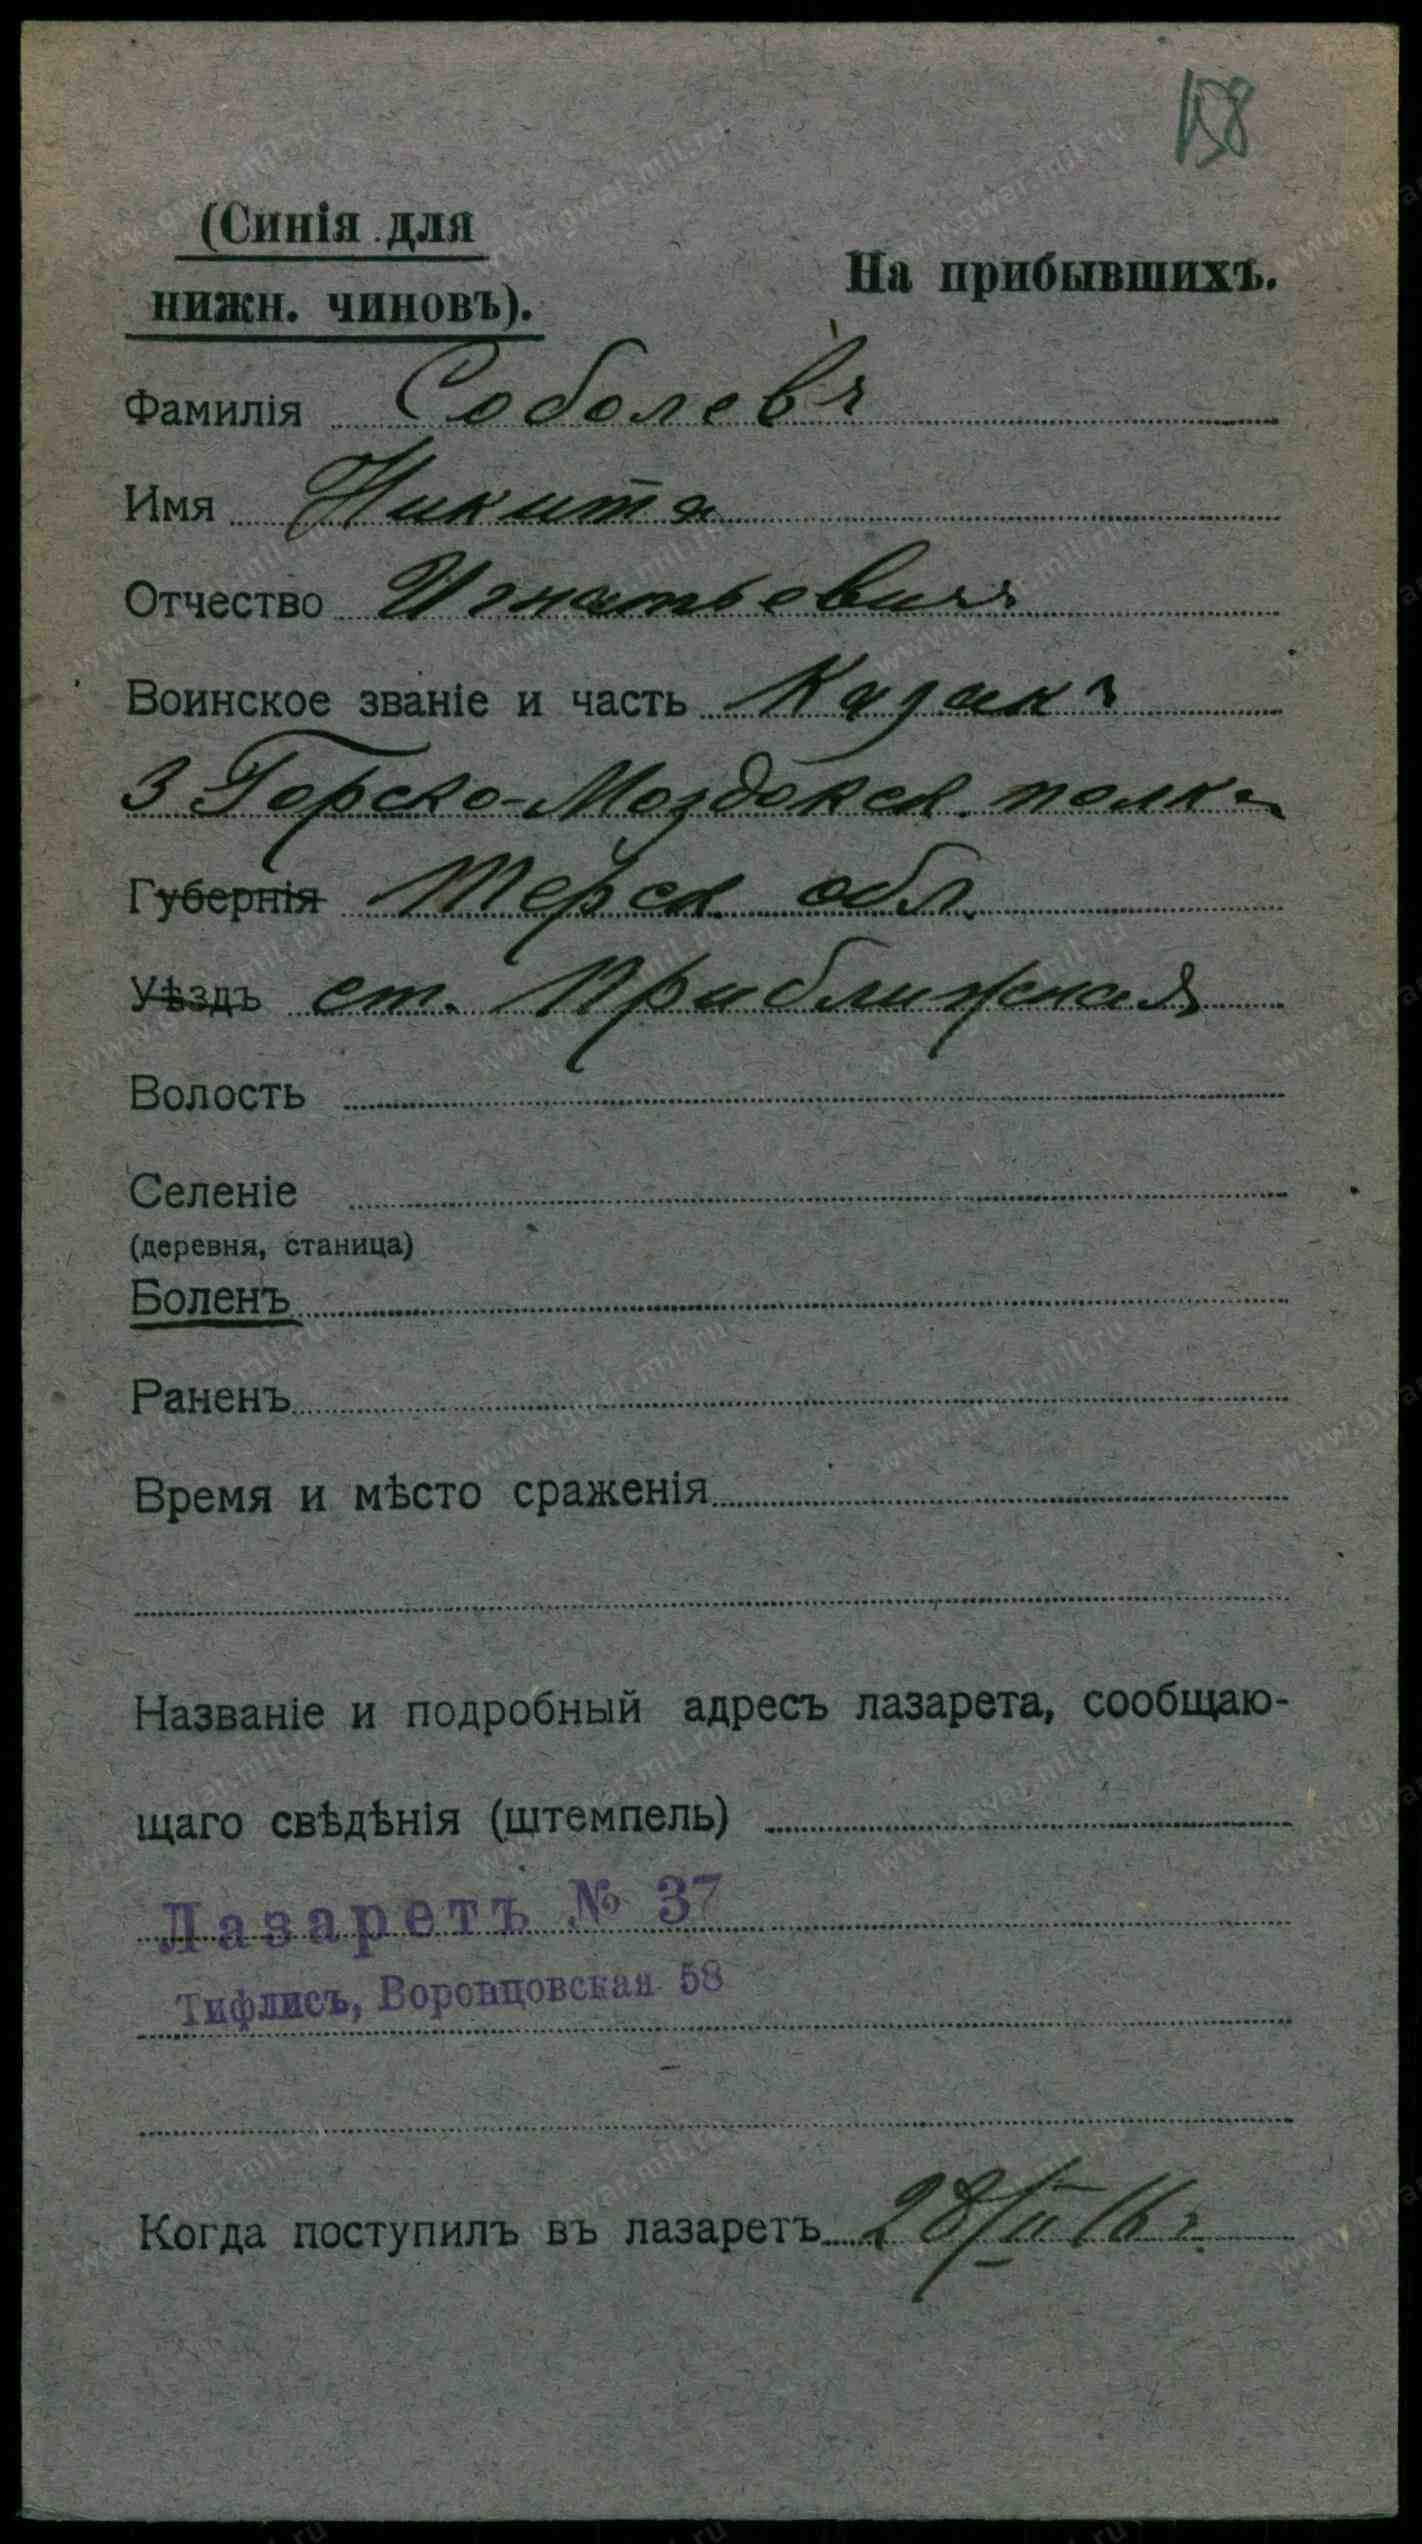 158
(Синія для
нижн. чиновъ).
На прибывшихъ.
Фамилія Соболевъ
Имя Никита
Отчество Игнатьевичъ
Воинское званіе и часть Казакъ
3 Горско-Моздокск. полка
Губернія Терск. обл.
Уѣздъ ст. Приближная
Волость
Селеніе
(деревня, станица)
Боленъ
Раненъ
Время и мѣсто сраженія
Названіе и подробный адресъ лазарета, сообщаю-
щаго свѣдѣнія (штемпель)
Лазаретъ № 37
Тифлисъ, Воронцовская 58
Когда поступилъ въ лазаретъ 28/II 16 г.
www.gwar.mil.ru